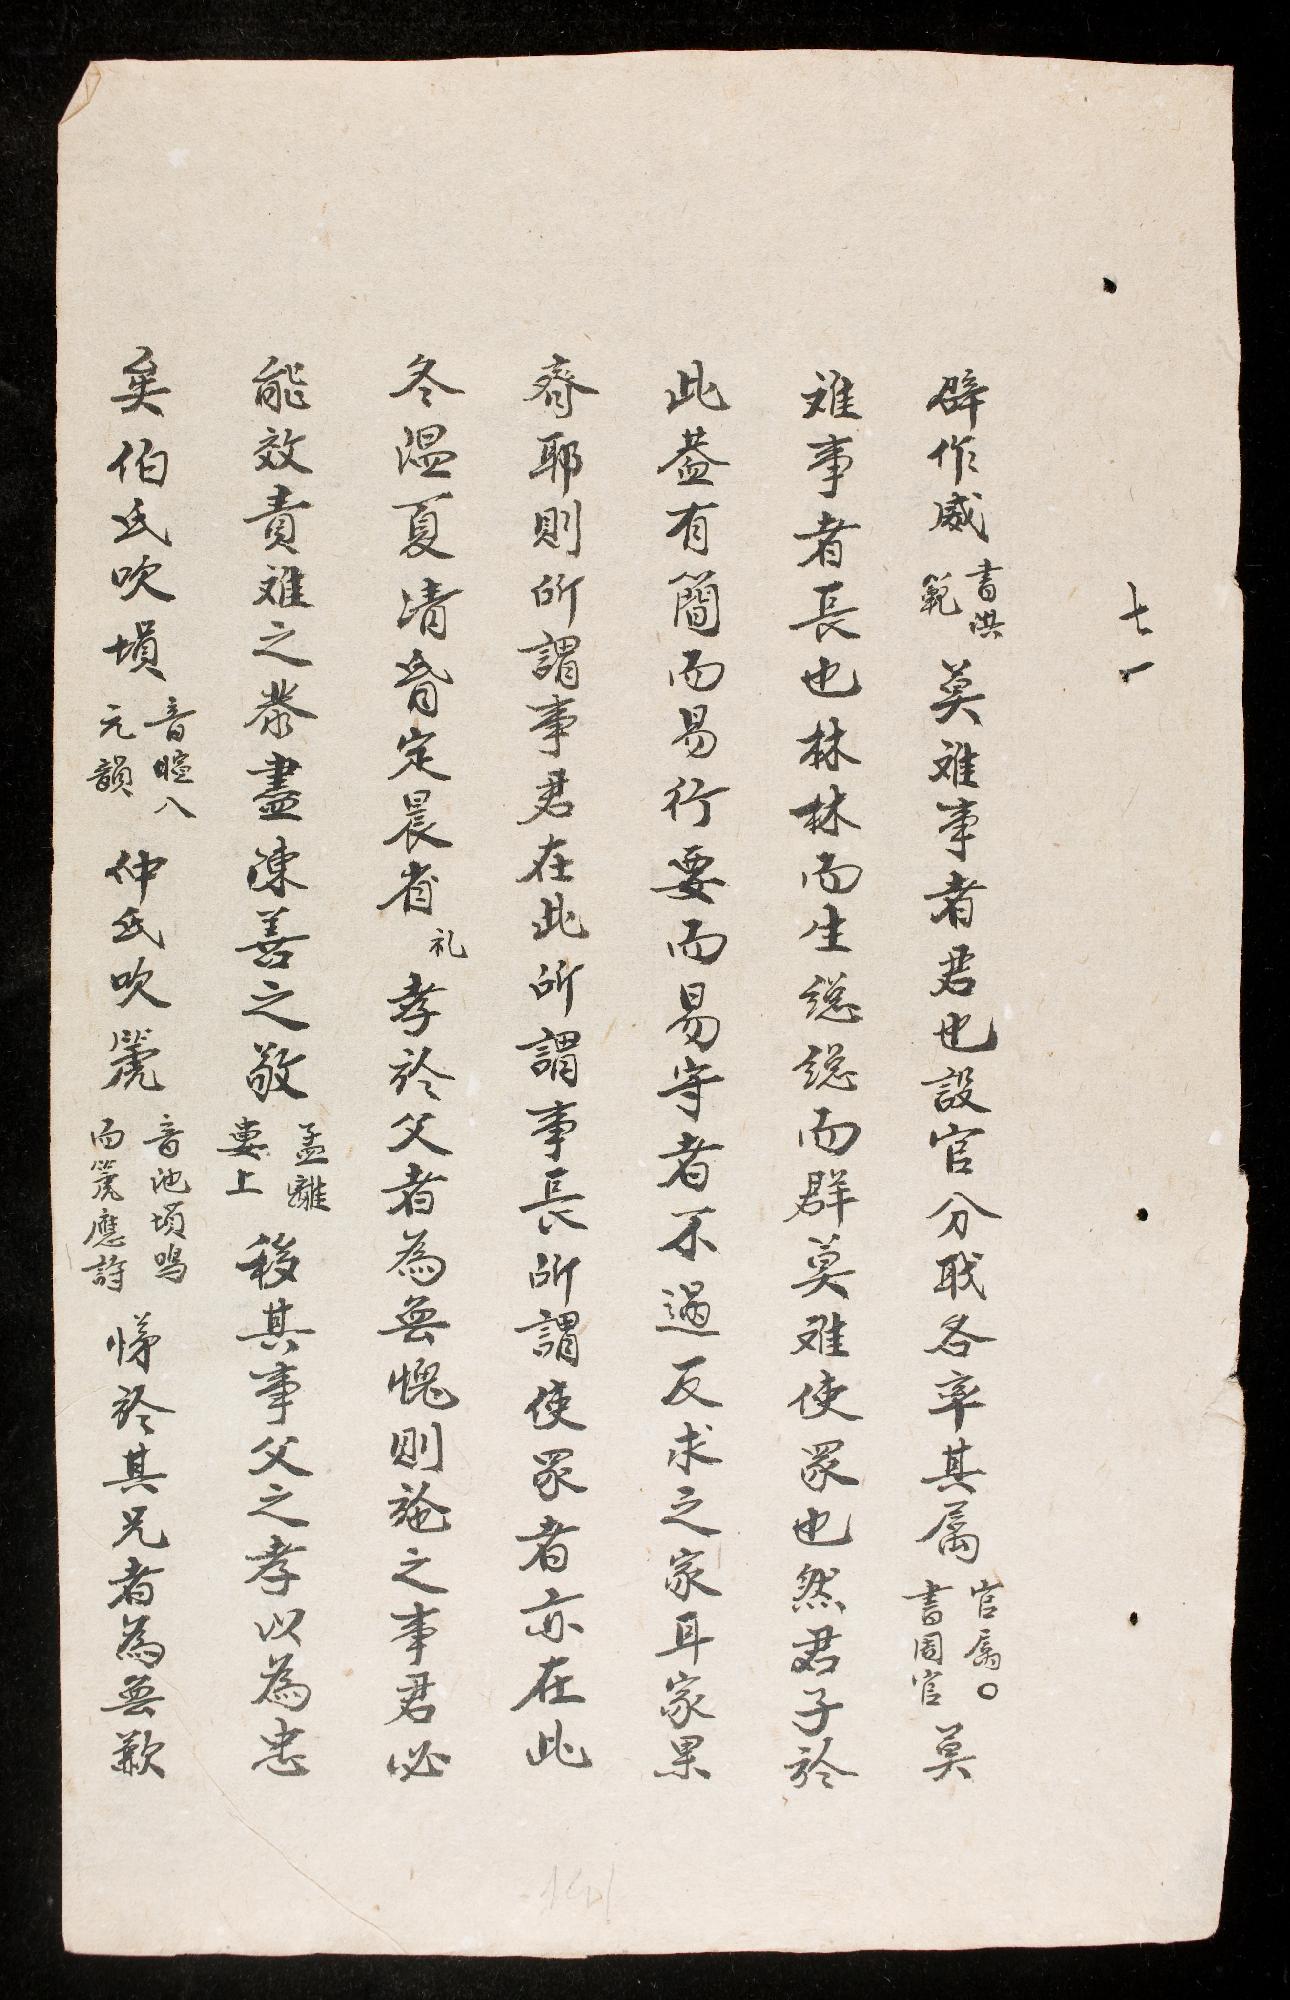 七一
辟作威書洪範莫难事者君也設官分职各率其属官属〇書周官莫
难事者長也林林而生総総而群莫难使众也然君子於
此葢有簡而易行要而易守者不過反求之家耳家果
齊耶則所謂事君在此所謂事長所謂使众者亦在此
冬温夏凊昏定晨省礼孝於父者為無愧則論之事君必
能效責难之恭盡陳善之敬孟離婁上移其事父之孝以為忠
矣伯氏吹塤音暄八元韻仲氏吹篪音池塤鸣而篪應詩悌於其兄者為無歉